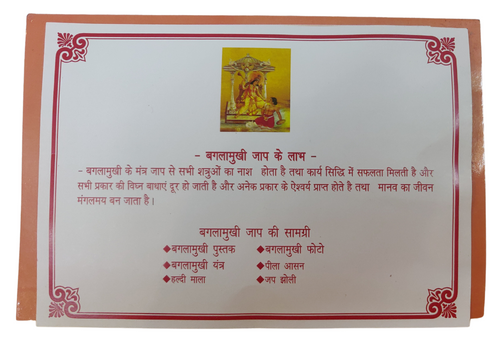 - बगलामुखी जाप के लाभ -
- बगलामुखी के मंत्र जाप से सभी शत्रुओं का नाश होता है तथा कार्य सिद्धि में सफलता मिलती है और
सभी प्रकार की विघ्न बाधाएं दूर हो जाती है और अनेक प्रकार के ऐश्वर्य प्राप्त होते है तथा मानव का जीवन
मंगलमय बन जाता है।
बगलामुखी जाप की सामग्री
◆बगलामुखी पुस्तक ◆बगलामुखी फोटो
◆बगलामुखी यंत्र ◆पीला आसन
◆हल्दी माला ◆जप झोली